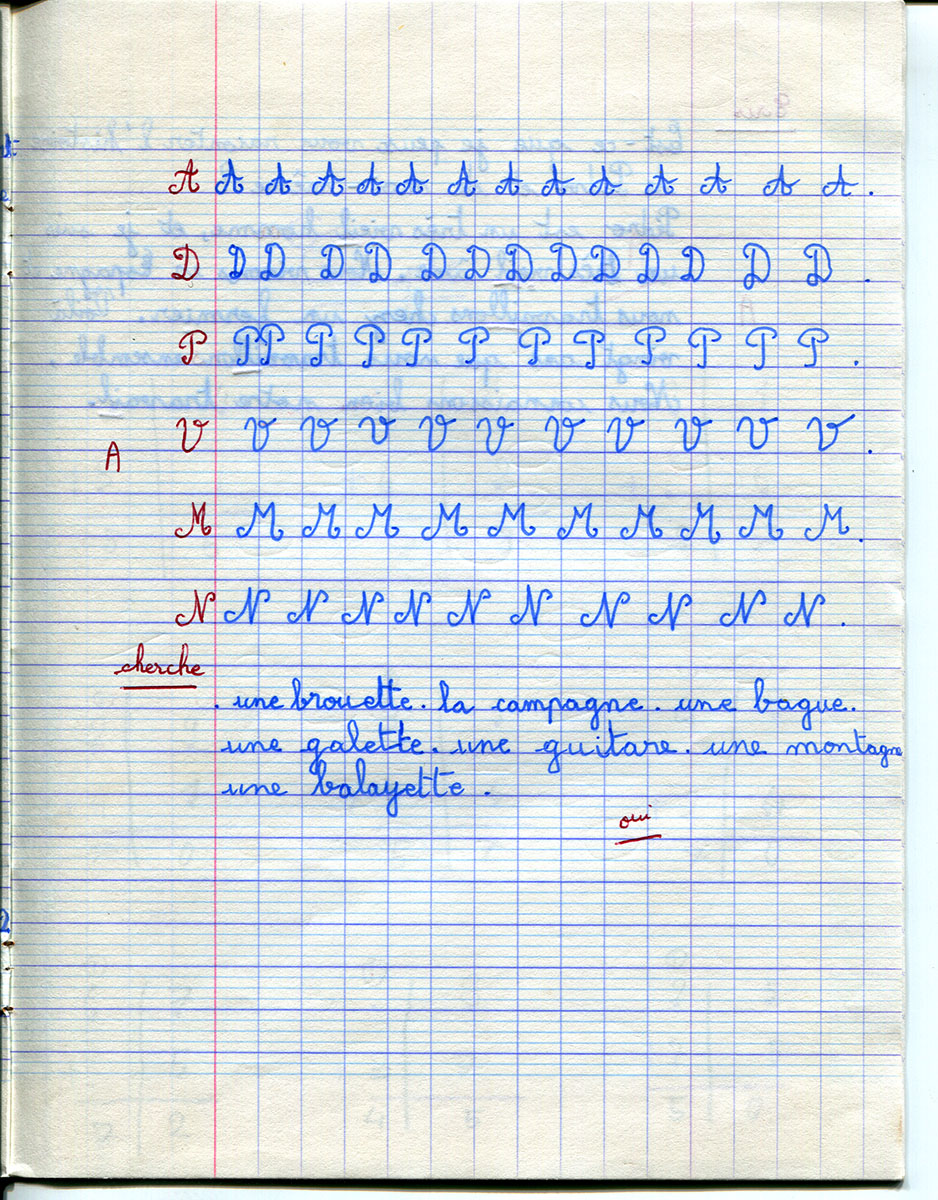 A A A A A A A A A A A A A A .
D D D D D D D D D D D D D D .
P P P P P P P P P P P P P .
V V V V V V V V V V V .
A
M M M M M M M M M M M .
N N N N N N N N N N N .
cherche
. une brouette . la campagne . une bague .
une galette . une guitare . une montagne
une balayette .
oui